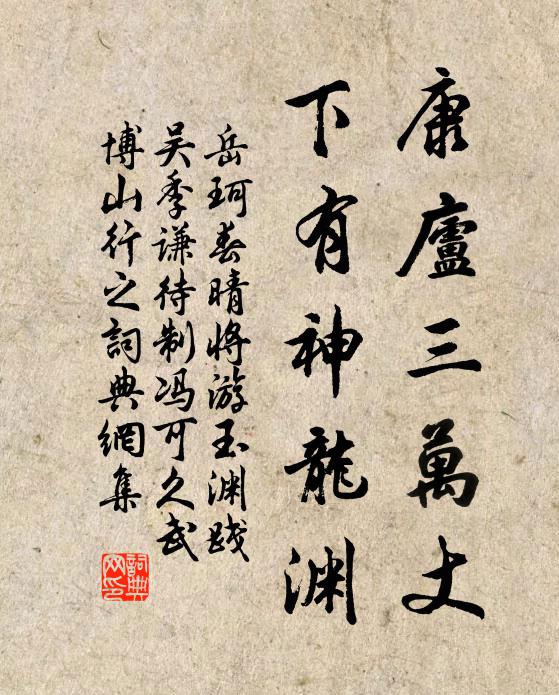 康廬三萬丈
下有神龍渊
岳珂春晴將游玉渊践
吴季谦待制冯可久武
博山行之詞典網集
詞典
网印